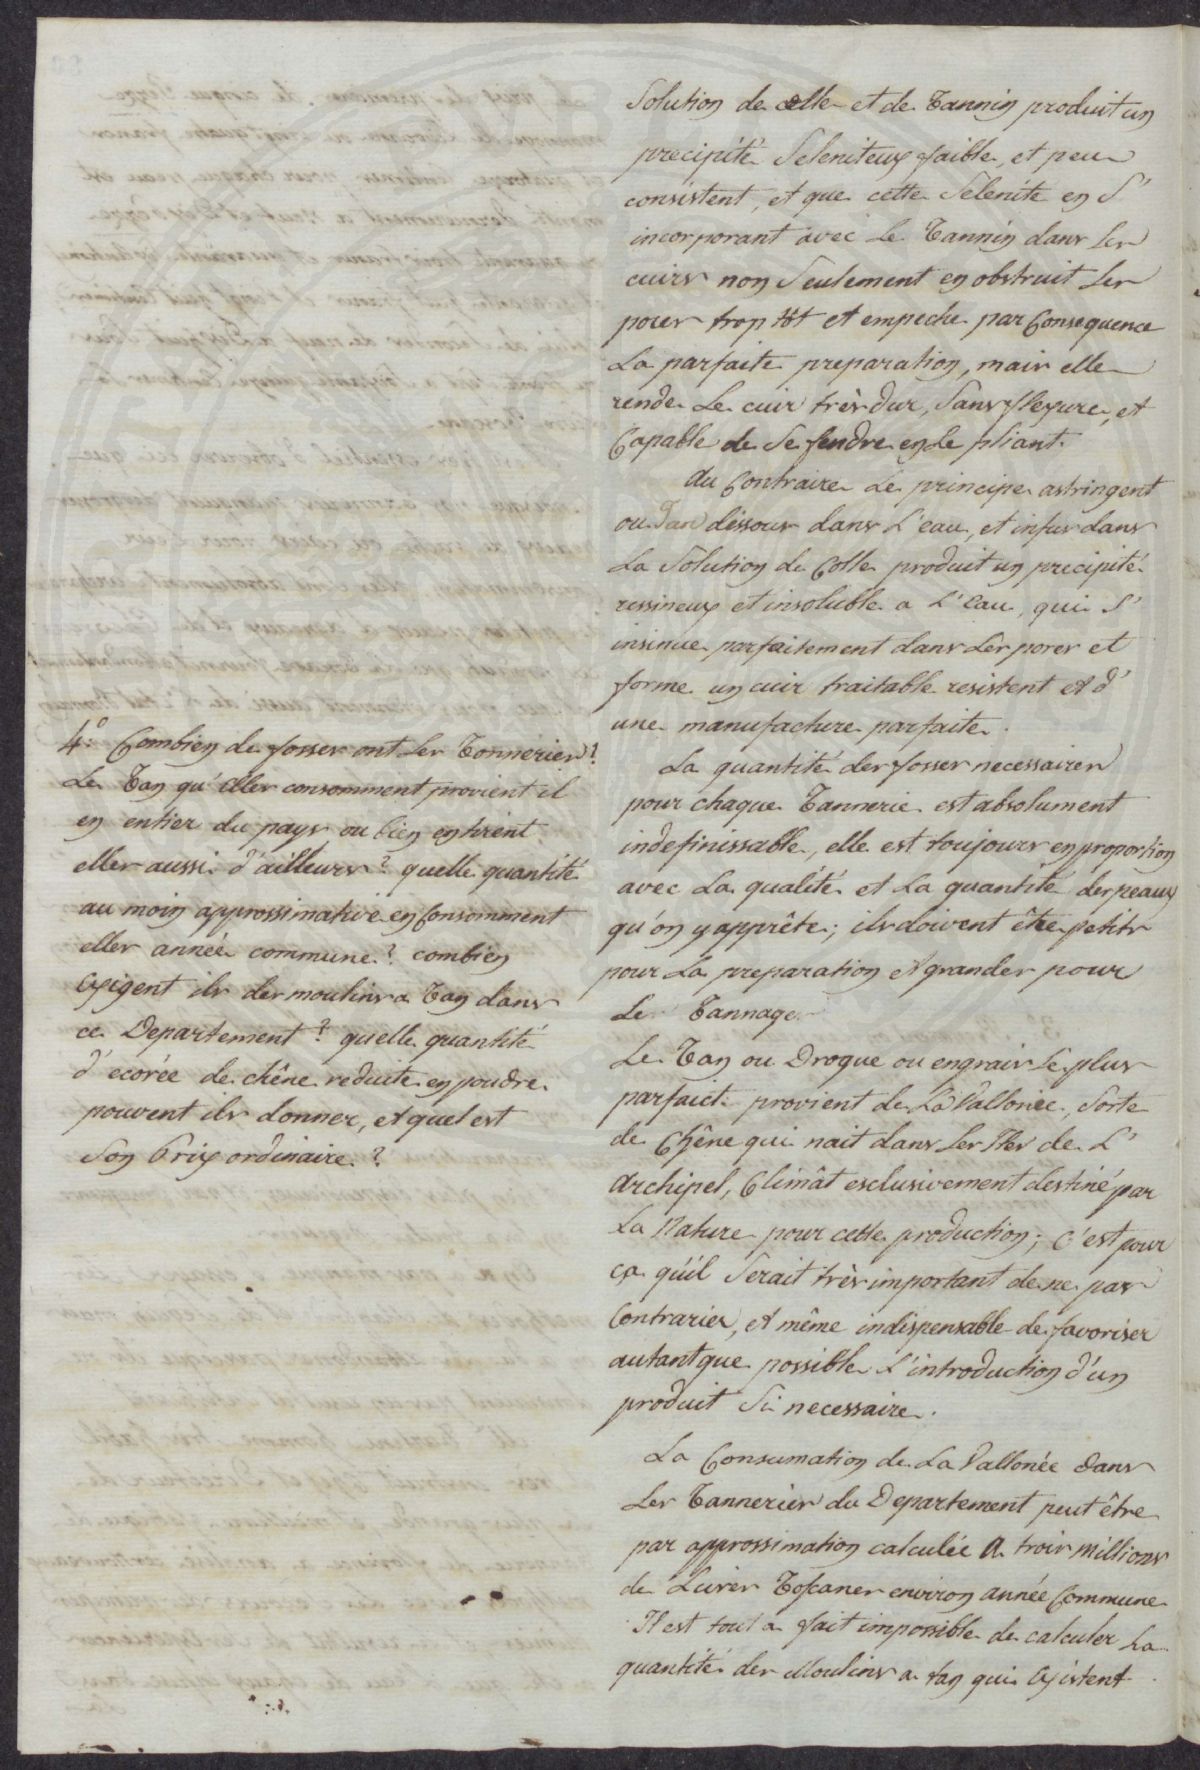 Solution de colle et de Tannin produit un
precipité Seleniteux faible, et peu
consistent, et que cette Selenite en S'
incorporant avec le Tannin dans les
cuirs non Seulement en obstruit les
pores trop tôt et empeche par Consequence
La parfaite preparation, mais elle
rende Le cuir très dur, Sans flexure, et
Capable de Se fendre en Le pliant.
Au Contraire Le principe astringent
ou Tan dissous dans L'eau, et infus dans
La Solution de Colle produit un precipité
ressineux et insoluble a L'Eau, qui S'
insinue parfaitement dans Les pores et
forme un cuir traitable resistent et d'
une manufacture parfaite.
4.° Combien de fosses ont Les Tonneries?
Le Tan qu'elles consomment provient il
en entier du pays ou bien en tirent
elles aussi d'ailleurs? quelle quantité
au moin approssimative en Consomment
elles année commune? combien
Exigent ils des moulins a Tan dans
ce Departement? quelle quantité
d'ecorée de chêne reduite en poudre
pouvent ils donner, et quel est
Son Prix ordinaire?
La quantité des fosses necessaires
pour chaque Tannerie est absolument
indefinissable, elle est toujours en proportion
avec La qualité et La quantité des peaux
qu'on y apprête; ils doivent être petits
pour La preparation et grandes pour
Le Tannage
Le Tan ou Drogue ou engrais Le plus
parfaict provient de La Vallonée, Sorte
de Chêne qui nait dans Les Iles de L'
Archipel, Climât esclusivement destiné par
La Nature pour cette production; c'est pour
ça qu'il Serait très important de ne pas
Contrarier, et même indispensable de favoriser
autant que possible L'introduction d'un
produit Si necessaire.
La Consumation de La Vallonée dans
Les Tanneries du Departement peut être
par approssimation calculée a trois millions
de Livres Toscanes environ année Commune
Il est tout a fait impossible de calculer La
quantité des Moulins a tan qui Existent